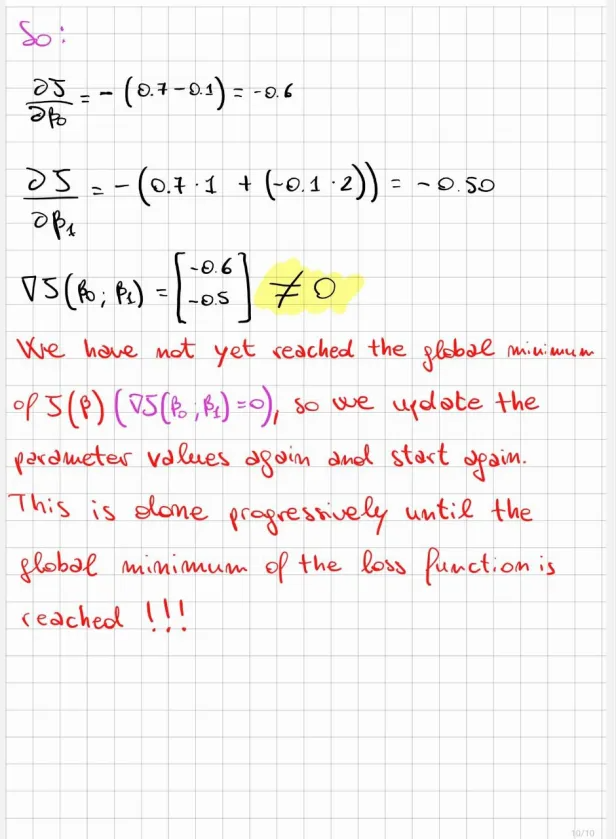 So:
∂J/∂β₀ = -(0.7-0.1) = -0.6
∂J/∂β₁ = -(0.7·1 + (-0.1·2)) = -0.50
∇J(β₀; β₁) = [-0.6 -0.5] ≠ 0
We have not yet reached the global minimum
of J(β) (∇J(β₀; β₁)=0), so we update the
parameter values again and start again.
This is done progressively until the
global minimum of the loss function is
reached !!!
10/10